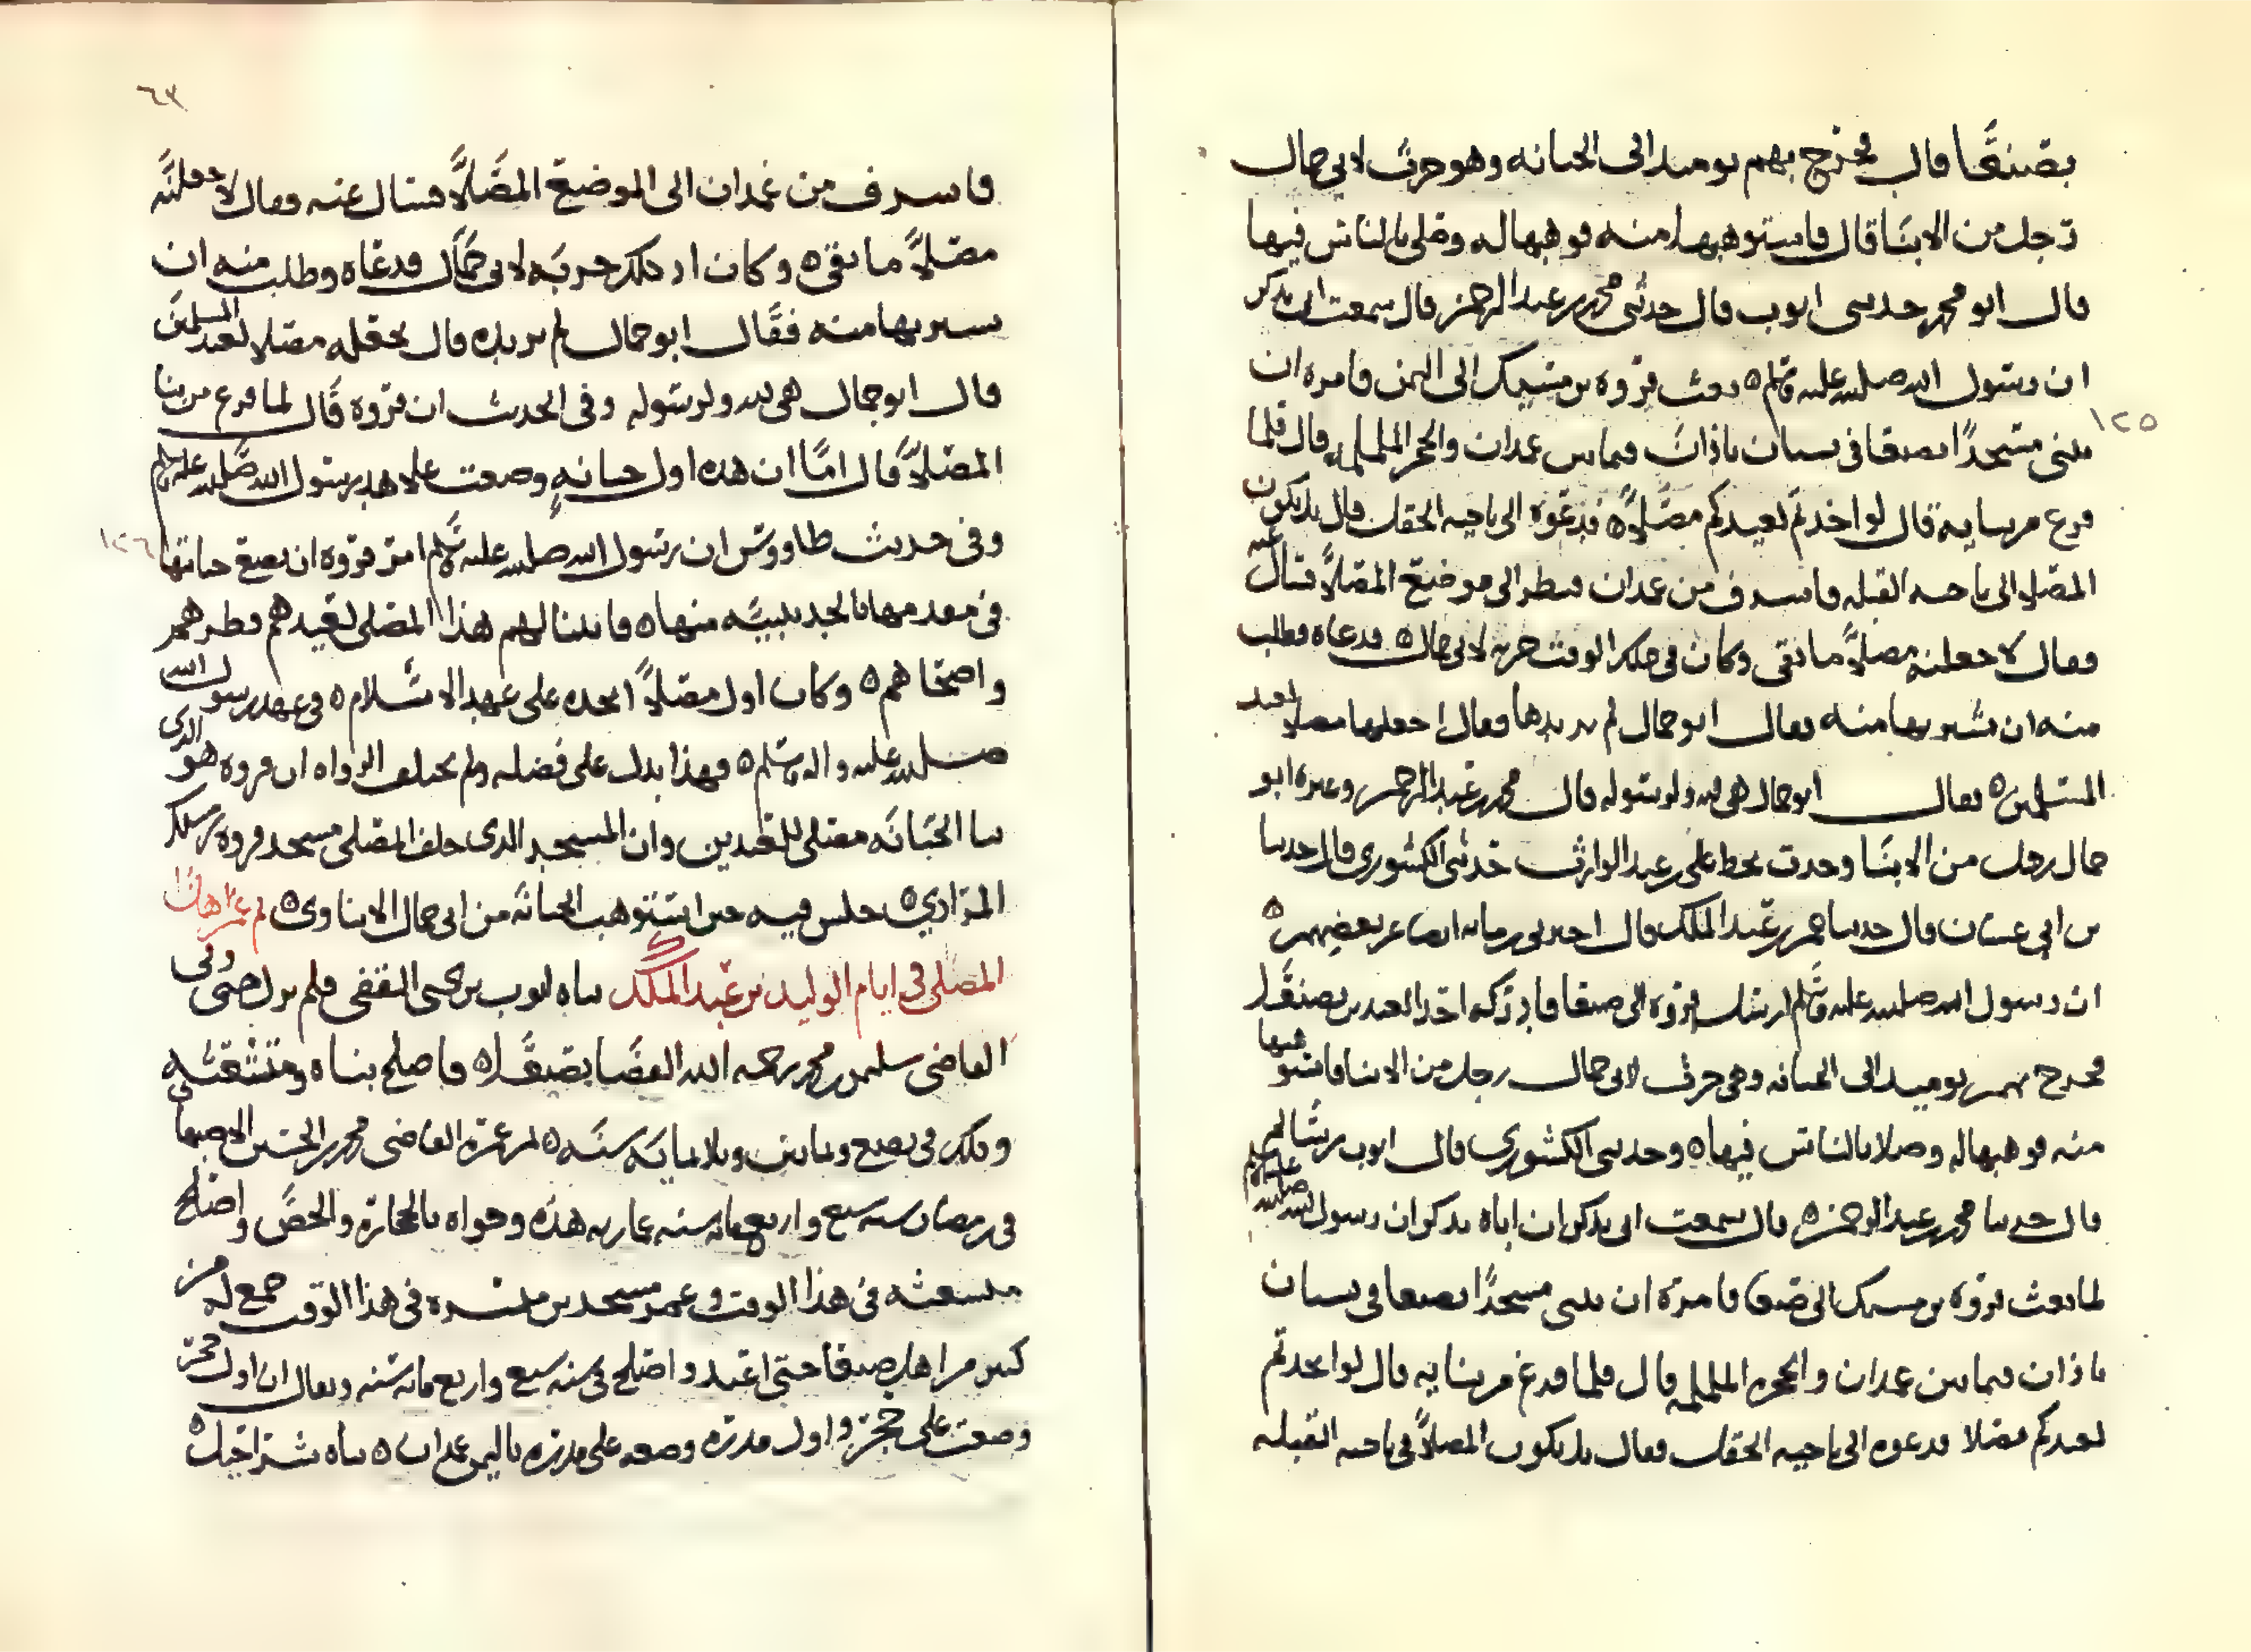 بصنعا قال فخرج بهم يوميد الى الجبانه وهو حرث لابي جمال
رجل من الابنا قال فاستوهبها منه فوهبها له وصلى بالناس فيها
قال ابو محمد حدثني ايوب قال حدثني محمد بن عبد الرحمن قال سمعت ابي يذكر
ان رسول الله صلى الله عليه وسلم بعث فروه بن مسيك الى اليمن فامره ان
يبني مسجدًا بصنعا في بستان باذان فيما بين غمدان والحجر الململمه قال فلما
١٢٥
فرغ من بنايه قال لو اخذتم لعيدكم مصلًا فدعوه الى ناحيه الحقل قال بل يكون
المصلا الى ناحيه القبله فاشرف من غمدان فنظر الى موضع المصلًا فسال عنه
فقال لاجعلنه مصلًا ما بقي وكان في ذلك الوقت حربه لابي جمال فدعاه وطلب
منه ان يشتريها منه فقال ابو جمال لم تريدها فقال اجعلها مصلا لعيد
المسلمين فقال ابو جمال هي لله ولرسوله قال محمد بن عبد الرحمن وغيره ابو
جمال رجل من الابنا وجدت بخط علي بن عبد الوارث حدثني الكشوري قال حدثنا
بن ابي غسان قال حدثنا محمد بن عبد الملك قال اخبرني رمانه ايضا عن بعضهم
ان رسول الله صلى الله عليه وسلم ارسل فروه الى صنعا فادركه احد العيدين بصنعا
فخرج بهم يوميد الى الجبانه وهي حرث لابي جمال رجل من الابنا فاستوهبها
منه فوهبها له وصلا بالناس فيها وحدثني الكشوري قال ايوب بن سالم
قال حدثنا محمد بن عبد الرحمن قال سمعت ابي يذكر ان اباه يذكر ان رسول الله صلى الله عليه وسلم
لما بعث فروه بن مسيك الى صنعا فامره ان يبني مسجدًا بصنعا في بستان
باذان فيما بين غمدان والحجره الململمه قال فلما فرغ من بنايه قال لو اتخذتم
لعيدكم مصلا فدعوه الى ناحيه الحقل فقال بل يكون المصلًا في ناحيه القبله
٦٣
فاشرف من غمدان الى الموضع المصلًا فسال عنه فقال لاجعلنه
مصلًا ما بقي وكان اذ ذلك حربه لابي جمال فدعاه وطلب منه ان
يشتريها منه فقال ابو جمال لم تريده قال نجعله مصلا لعيد المسلمين
قال ابو جمال هي لله ولرسوله وفي الحديث ان فروه قال لما فرغ من بنا
المصلًا قال اما ان هذه اول جبانه وضعت على عهد رسول الله صلى الله عليه وسلم
وفي حديث طاووس ان رسول الله صلى الله عليه وسلم امر فروه ان يضع جبانتها
١٢٦
في مقدمها بالجديبيه منها فابتنا لهم هذا المصلى لعيدهم فطرهم
واضحاهم وكان اول مصلًا اتخذه على عهد الاسلام في عهد رسول الله
صلى الله عليه واله وسلم فهذا يدل على فضله ولم يختلف الرواه ان فروه هو الذي
بنا الجبانه مصلى للعيدين وان المسجد الذي خلف المصلى مسجد فروه بن مسيك
المرادي جلس فيه حين استوهب الجبانه من ابي جمال الابناوي ثم عمر هذا
المصلى في ايام الوليد بن عبد الملك بناه ايوب بن يحيى الثقفي فلم يزل حتى ولي
القاضي سليمن بن محمد رحمه الله القضا بصنعا فاصلح بناه ومتشعثه
وذلك في بضع وثمانين وثلاثمايه سنه ثم عمره القاضي محمد بن الحسين الاصبهاني
في رمضان سنه سبع واربعمايه سنه عماريه هذه وحواه بالحجاره والجص واصلح
متشعثه في هذا الوقت وعمر مسجد بن ميسره في هذا الوقت جمع له من
كثير من اهل صنعا حتى اعيد واصلح في سنه سبع واربع مايه سنه ويقال ان اول حجر
وضعت على حجر واول مدره وضعه على مدره باليمن غمدان بناه شراحيل